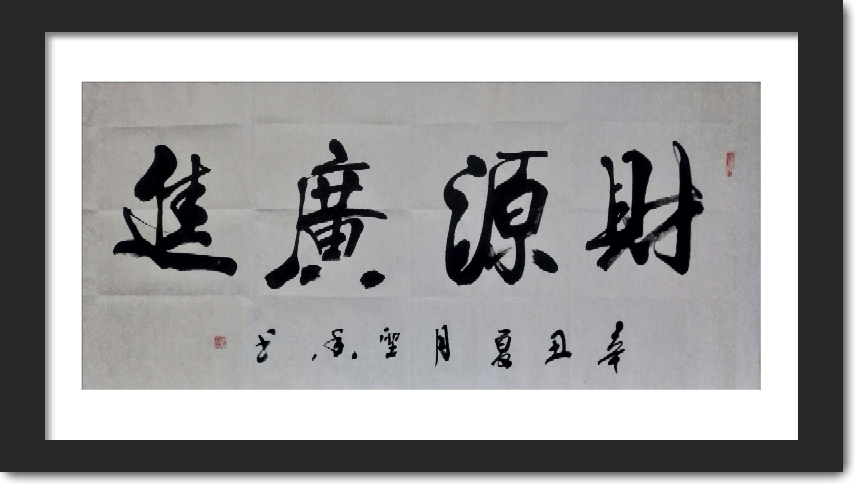 財源廣進
辛丑夏月聖